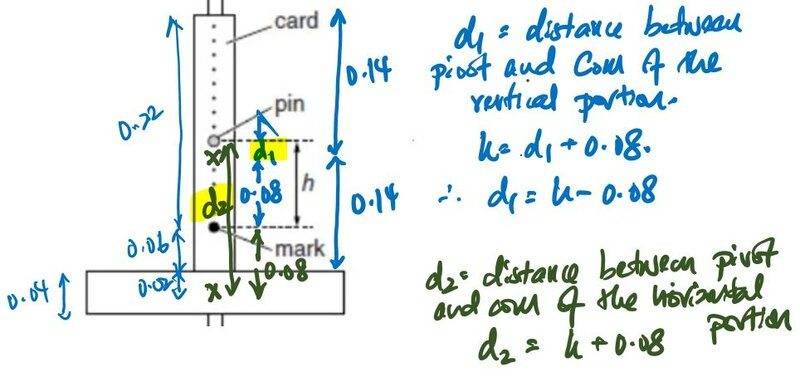 card
pin
h
mark
0.22
0.14
0.14
d₁
0.08
d₂
0.06
0.02
0.04
0.08
x
x
d₁ = distance between
pivot and COM of the
vertical portion.
h = d₁ + 0.08.
∴ d₁ = h - 0.08
d₂ = distance between pivot
and com of the horizontal
portion
d₂ = h + 0.08